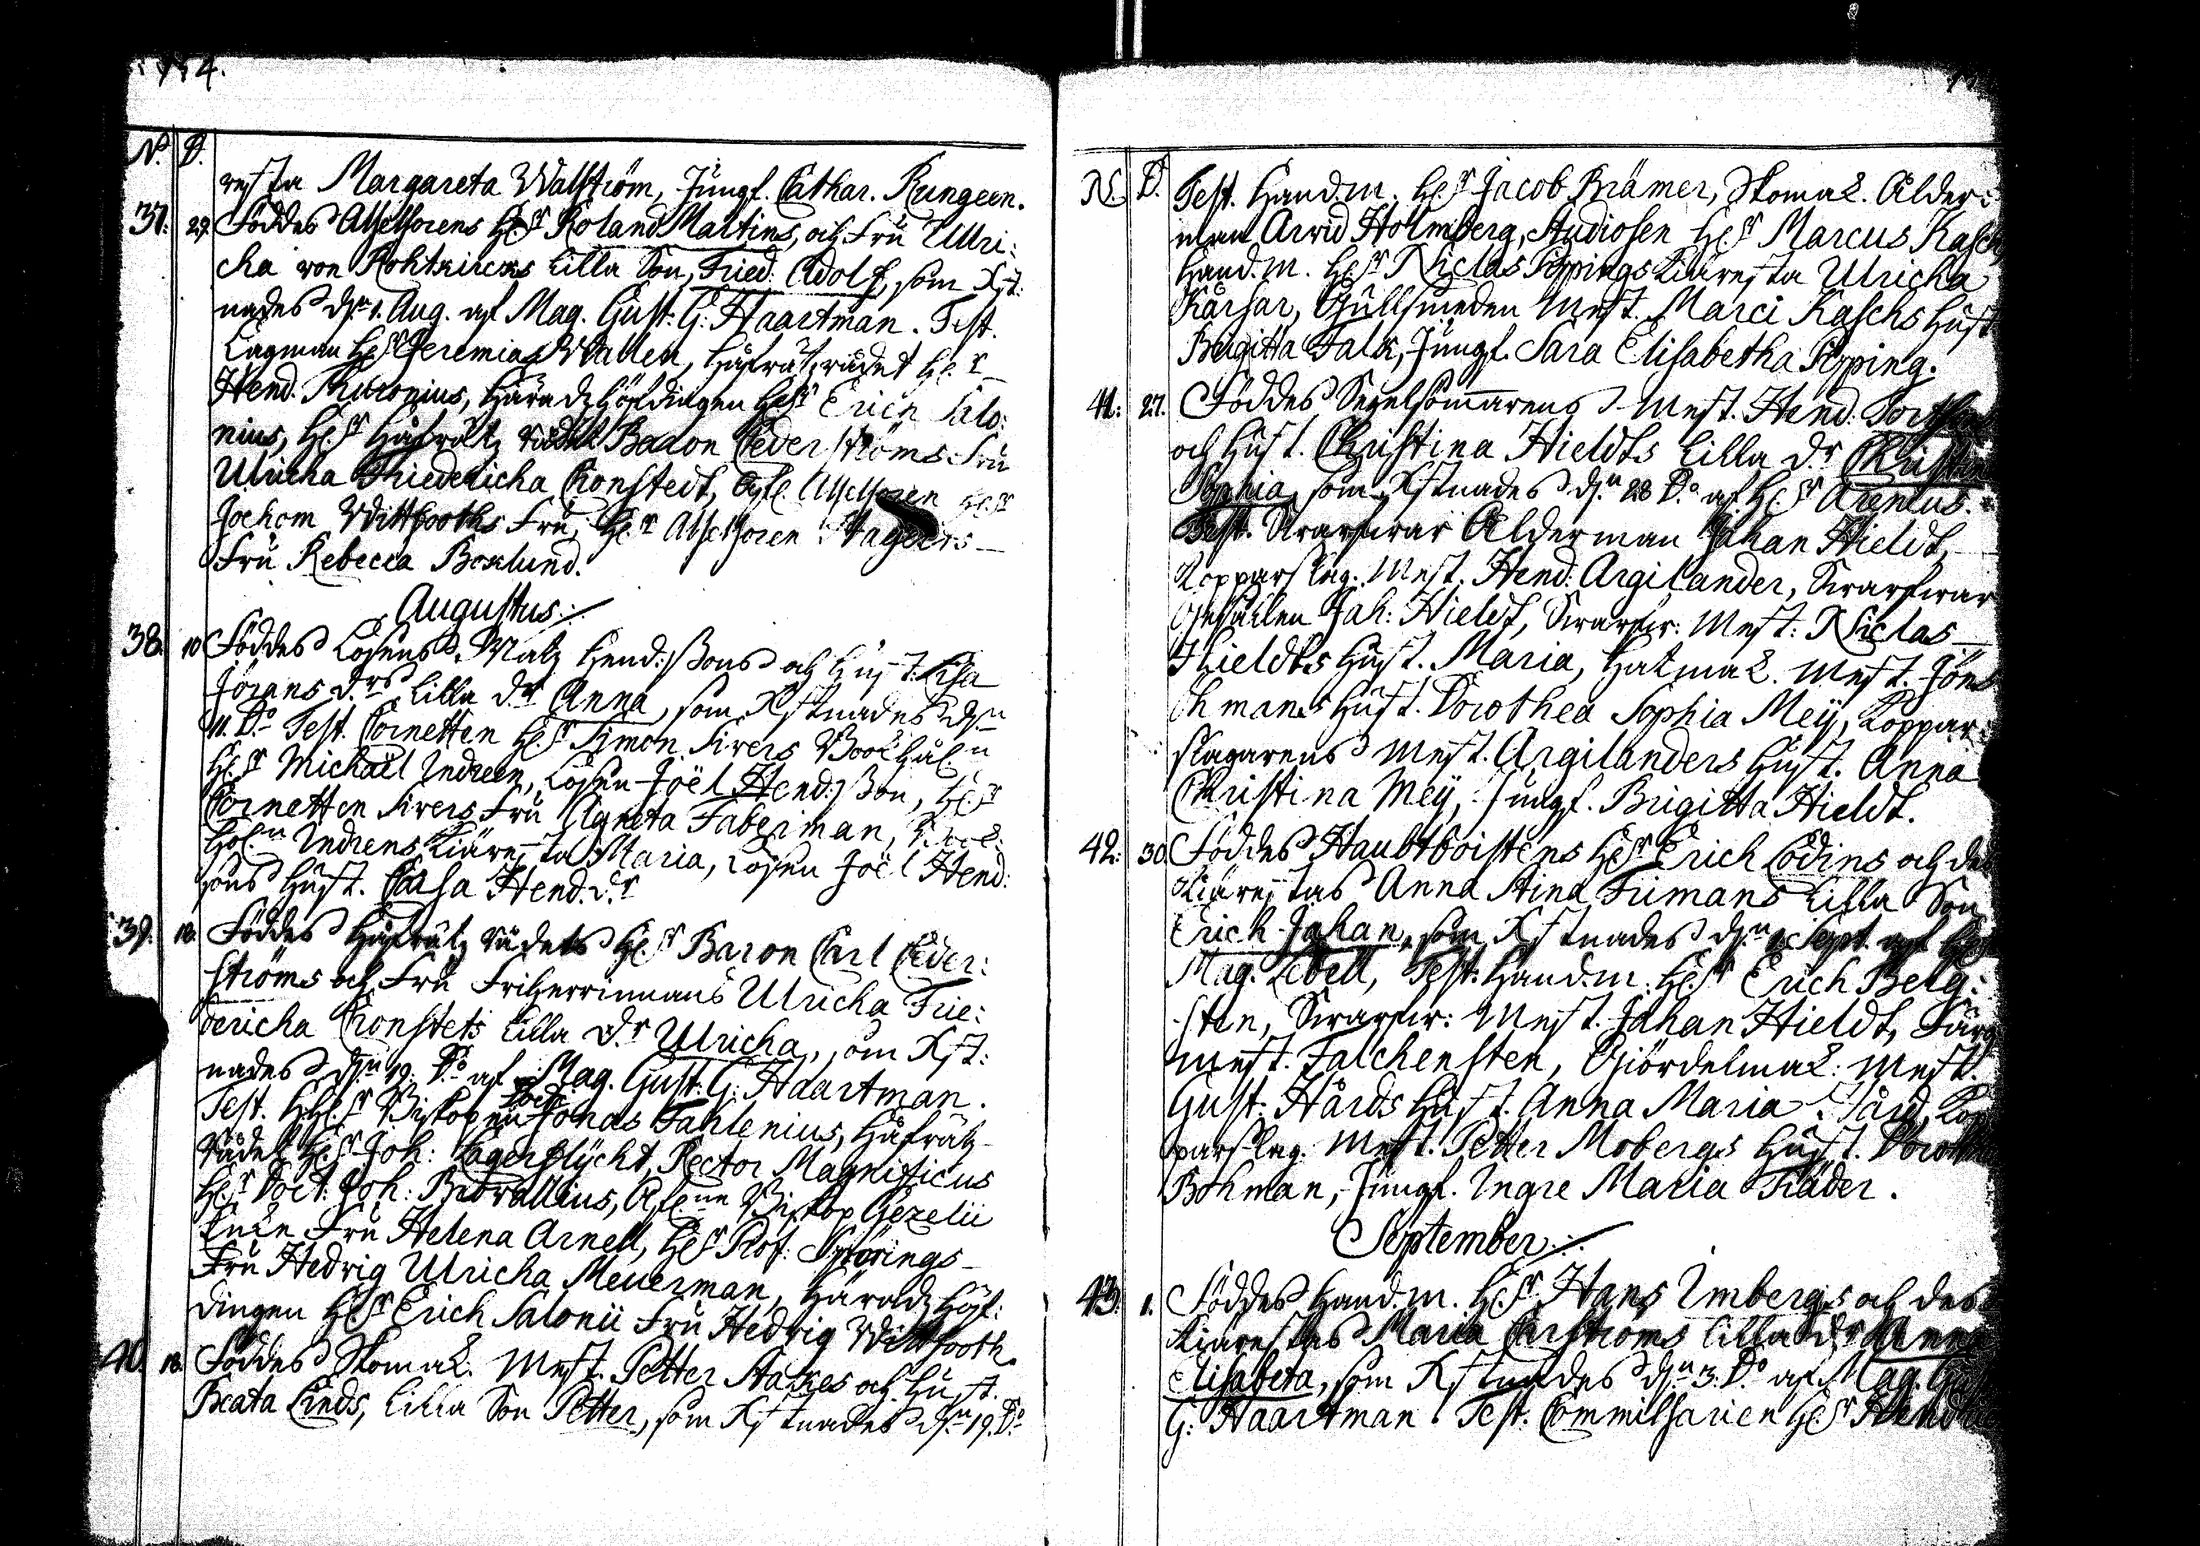 174.
N. D.
resta Margareta Walström, Jungf. Cathar. Rungeen.
37. 29. Föddes Assessorens H:r Roland Martins, och Fru Ulri:
cka von Rohtkircks lilla Son, Fried. Adolf, som Xst:
nades d:n 1. Aug. af Mag. Gust: G: Haartman. Test.
Lagman H:r Jeremias Wallen, Håfrätz rådet H:r
Hend. Thuronius, Häradz höfdingen H:r Erich Salo:
nius, H:r Håfrätz rådet Baron Cederströms Fru
Ulricha Friedericha Cronstedt, Assessoren H:r
Jochom Wittfooths Fru, H:r Assessoren
Fru Rebecca Boxlund.
Augustus:
38. 10 Föddes Losens Matz Hend:ssons och Hust. Lisa
Jörans d:rs lilla d:r Anna, som Xstnades d:n
11. D:o Test. Cornetten H:r Simon Sivers Bookhål:n
H:r Michaël Indreen, Losen Joël Hend:sson, H:r
Cornetten Sivers Fru Agneta Faberman, Book:
hol:n Indrens Kiäresta Maria, Losen Joël Hend:
sons Hust. Caisa Hend.d:r
39. 18. Föddes Håfrätz rådets H:r Baron Carl Ceder:
ströms och Fru Friherrinnans Ulricha Frie:
dericha Cronstets lilla d:r Ulricha, som Xst:
nades d:n 19. D:o af Mag. Gust. G: Haartman.
Test. H:r Biskopen Doct. Jonas Fahlenius, Håfrätz
rådet H:r Joh: Lagerflycht, Rector Magnificus
H:r Doct: Joh: Browallius, Biskop Gezelii
Enke Fru Helena Arnell, H:r Prof. Spörings
Fru Hedvig Ulricha Meuerman, Häradz Höf:
dingen H:r Erich Salonii Fru Hedvig Wittfooth.
40. 18. Föddes Skomak. Mest. Petter Stakes och Hust.
Beata Linds, lilla Son Petter, som Xstnades d:n 19. D:o
N. D. Test. Hand.m. H:r Jacob Brämer, Skomak. Ålder:
man Arvid Holmberg, Studiosen H:r Marcus Kasch,
Hand.m. H:r Niclas Pippings Kiäresta Ulricha
Kärsar, Gullsmeden Mest. Marci Kaschs Hust.
Brigitta Falk, Jungf. Sara Elisabetha Pipping.
41. 27. Föddes Segelsömarens Mest. Hend.
och Hust. Christina Hieldts lilla d:r Christina
Sophia, som Xstnades d:n 28 D:o af H:r Arenius.
Test. Swarfwar Ålderman Johan Hieldt,
Kopparslag. Mest. Hend. Argilander, Swarfwar
Gesällen Joh: Hieldt, Swarfw: Mest: Niclas
Hieldts Hust. Maria, Hatmak. Mest. Jöns
Öhmans Hust. Dorothea Sophia Meÿ, Koppar:
slagarens Mest. Argilanders Hust. Anna
Christina Meÿ, Jungf. Brigitta Hieldt.
42. 30. Föddes Haubtboistens H:r Erich Lodins och des
Kiärestas Anna Stina Frimans lilla Son
Erich Johan, som Xstnades d:n 1 Sept. af
Mag. Lebell, Test: Hand.m. H:r Erich Berg:
sten, Swarfw: Mest. Johan Hieldt, Färg
mest. Falchensten, Giördelmak: Mest.
Gust: Hårds Hust. Anna Maria Hård, Kop
parslag. Mest. Petter Mobergs Hust.
Bohman, Jungf. Ingre Maria Träder.
September:
43. 1. Föddes Hand.m. H:r Hans Imbergs och des
Kiärestas Maria Carströms lilla d:r Anna
Elisabeta, som Xstnades d:n 3. D:o af Mag. Gust
G: Haartman. Test. Commissarien H:r